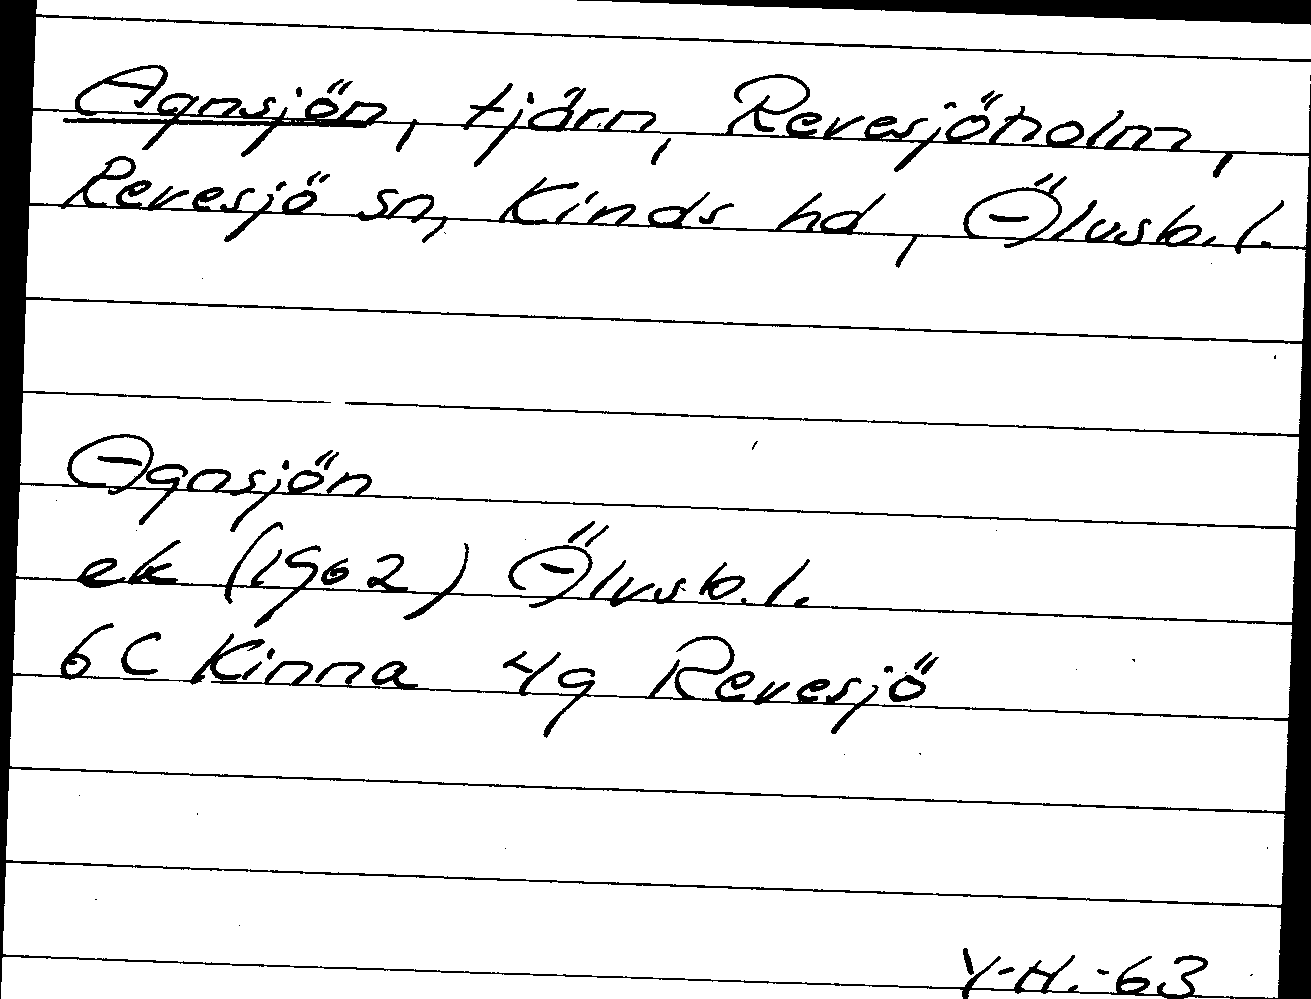 Agnsjön, tjärn, Revesjöholm,
Revesjö sn, Kinds hd, Älvsb. l.
Agnsjön
ek (1962) Älvsb. l.
6C Kinna 4g Revesjö
Y-H.-63